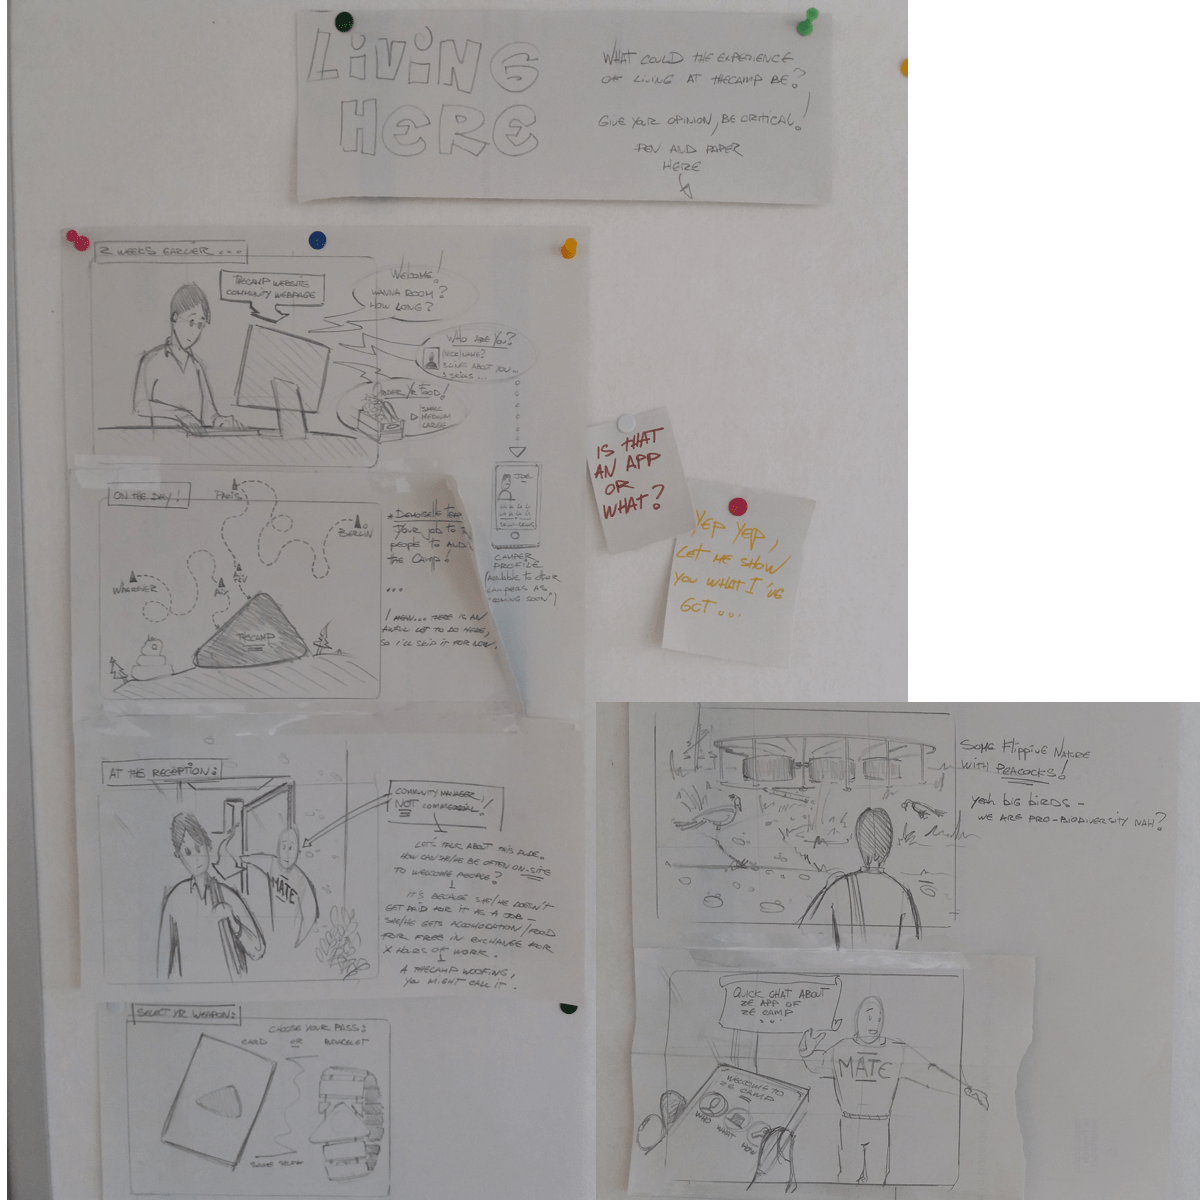 LIVING
HERE
WHAT COULD THE EXPERIENCE
OF LIVING AT THECAMP BE?
GIVE YOUR OPINION, BE CRITICAL!
PEN AND PAPER
HERE
2 WEEKS EARLIER...
THECAMP WEBSITE
COMMUNITY WEBPAGE
WELCOME!
WANNA ROOM?
HOW LONG?
WHO ARE YOU?
(NICK)NAME?
ABOUT YOU...
3 SKILLS...
ORDER YR FOOD!
SMALL
MEDIUM
LARGE
JOE
CAMPER
PROFILE
(available to other
campers as
"coming soon")
IS THAT
AN APP
OR
WHAT?
YEP YEP,
LET ME SHOW
YOU WHAT I'VE
GOT...
ON THE DAY!
PARIS
BERLIN
WHEREVER
AIX
THECAMP
your job to
people to and
the Camp!
...
I MEAN... THERE IS AN
AWFUL LOT TO DO HERE,
SO I'LL SKIP IT FOR NOW.
AT THE RECEPTION:
MATE
COMMUNITY MANAGER,
NOT COMMERCIAL!
LET'S TALK ABOUT THIS DUDE.
HOW CAN SHE/HE BE OFTEN ON-SITE
TO WELCOME PEOPLE?
IT'S BECAUSE SHE/HE DOESN'T
GET PAID FOR IT AS A JOB -
SHE/HE GETS ACCOMODATION/FOOD
FOR FREE IN EXCHANGE FOR
X HOURS OF WORK.
A THECAMP WOOFING,
YOU MIGHT CALL IT.
SELECT YR WEAPON:
CHOOSE YOUR PASS:
CARD OR BRACELET
SOME FLIPPING NATURE
WITH PEACOCKS!
yeah big birds -
WE ARE PRO-BIODIVERSITY NAH?
QUICK CHAT ABOUT
ZE APP OF
ZE CAMP
...
MATE
WELCOME TO
ZE CAMP
WHO
WHAT
HOW